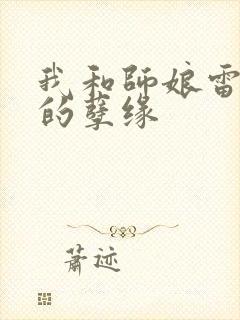 我和師娘雷
的孽缘
蕭迹